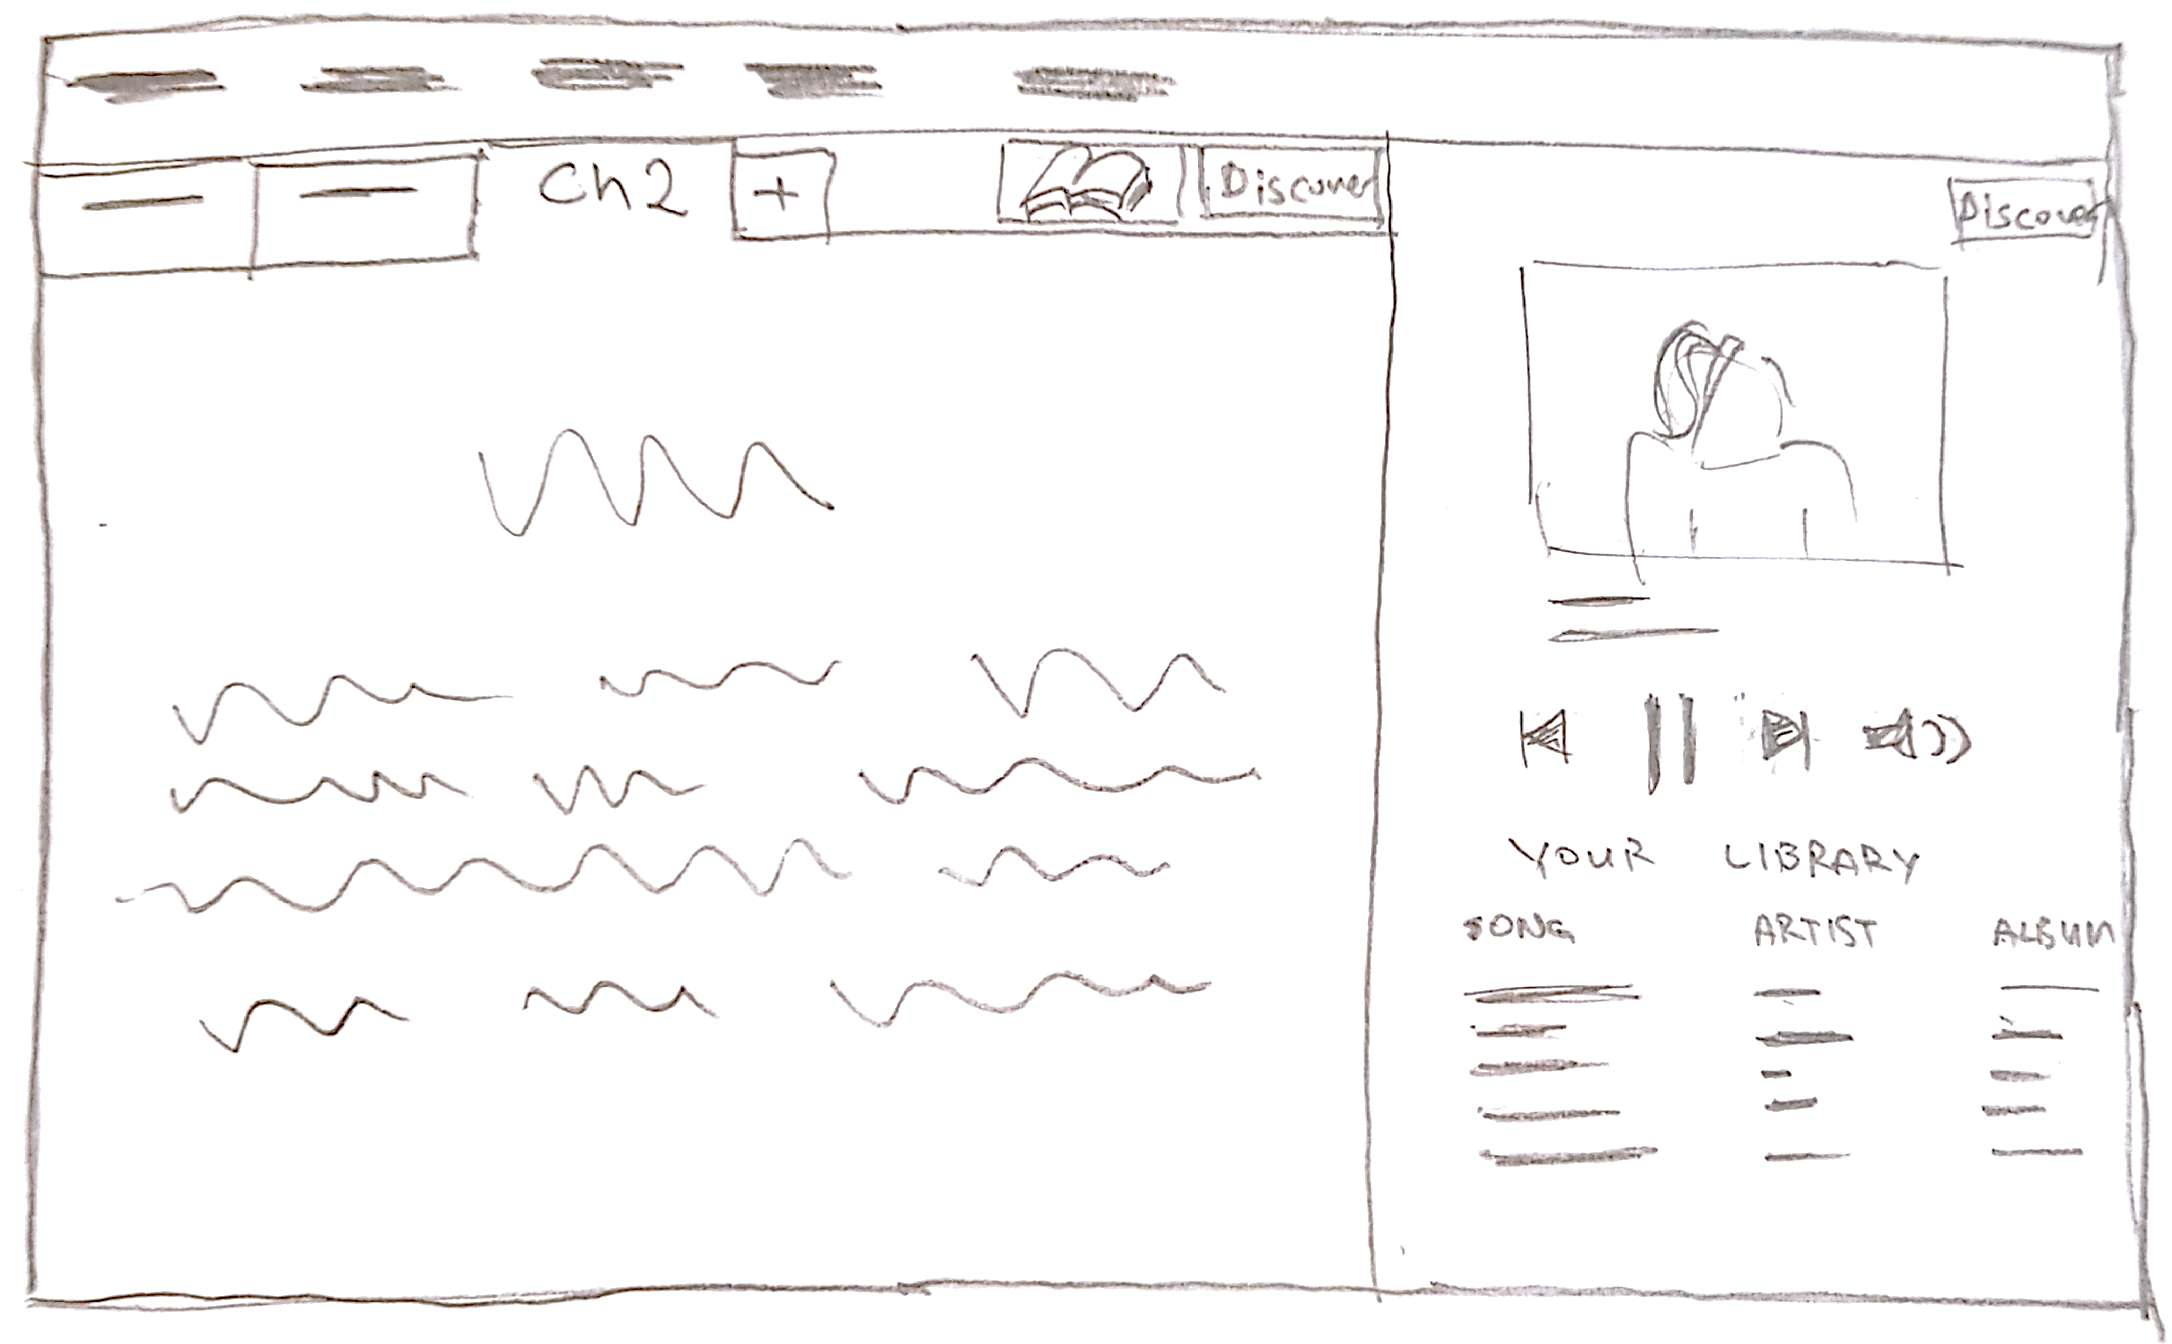 Ch2 + Discover
Discover
YOUR LIBRARY
SONG ARTIST ALBUM